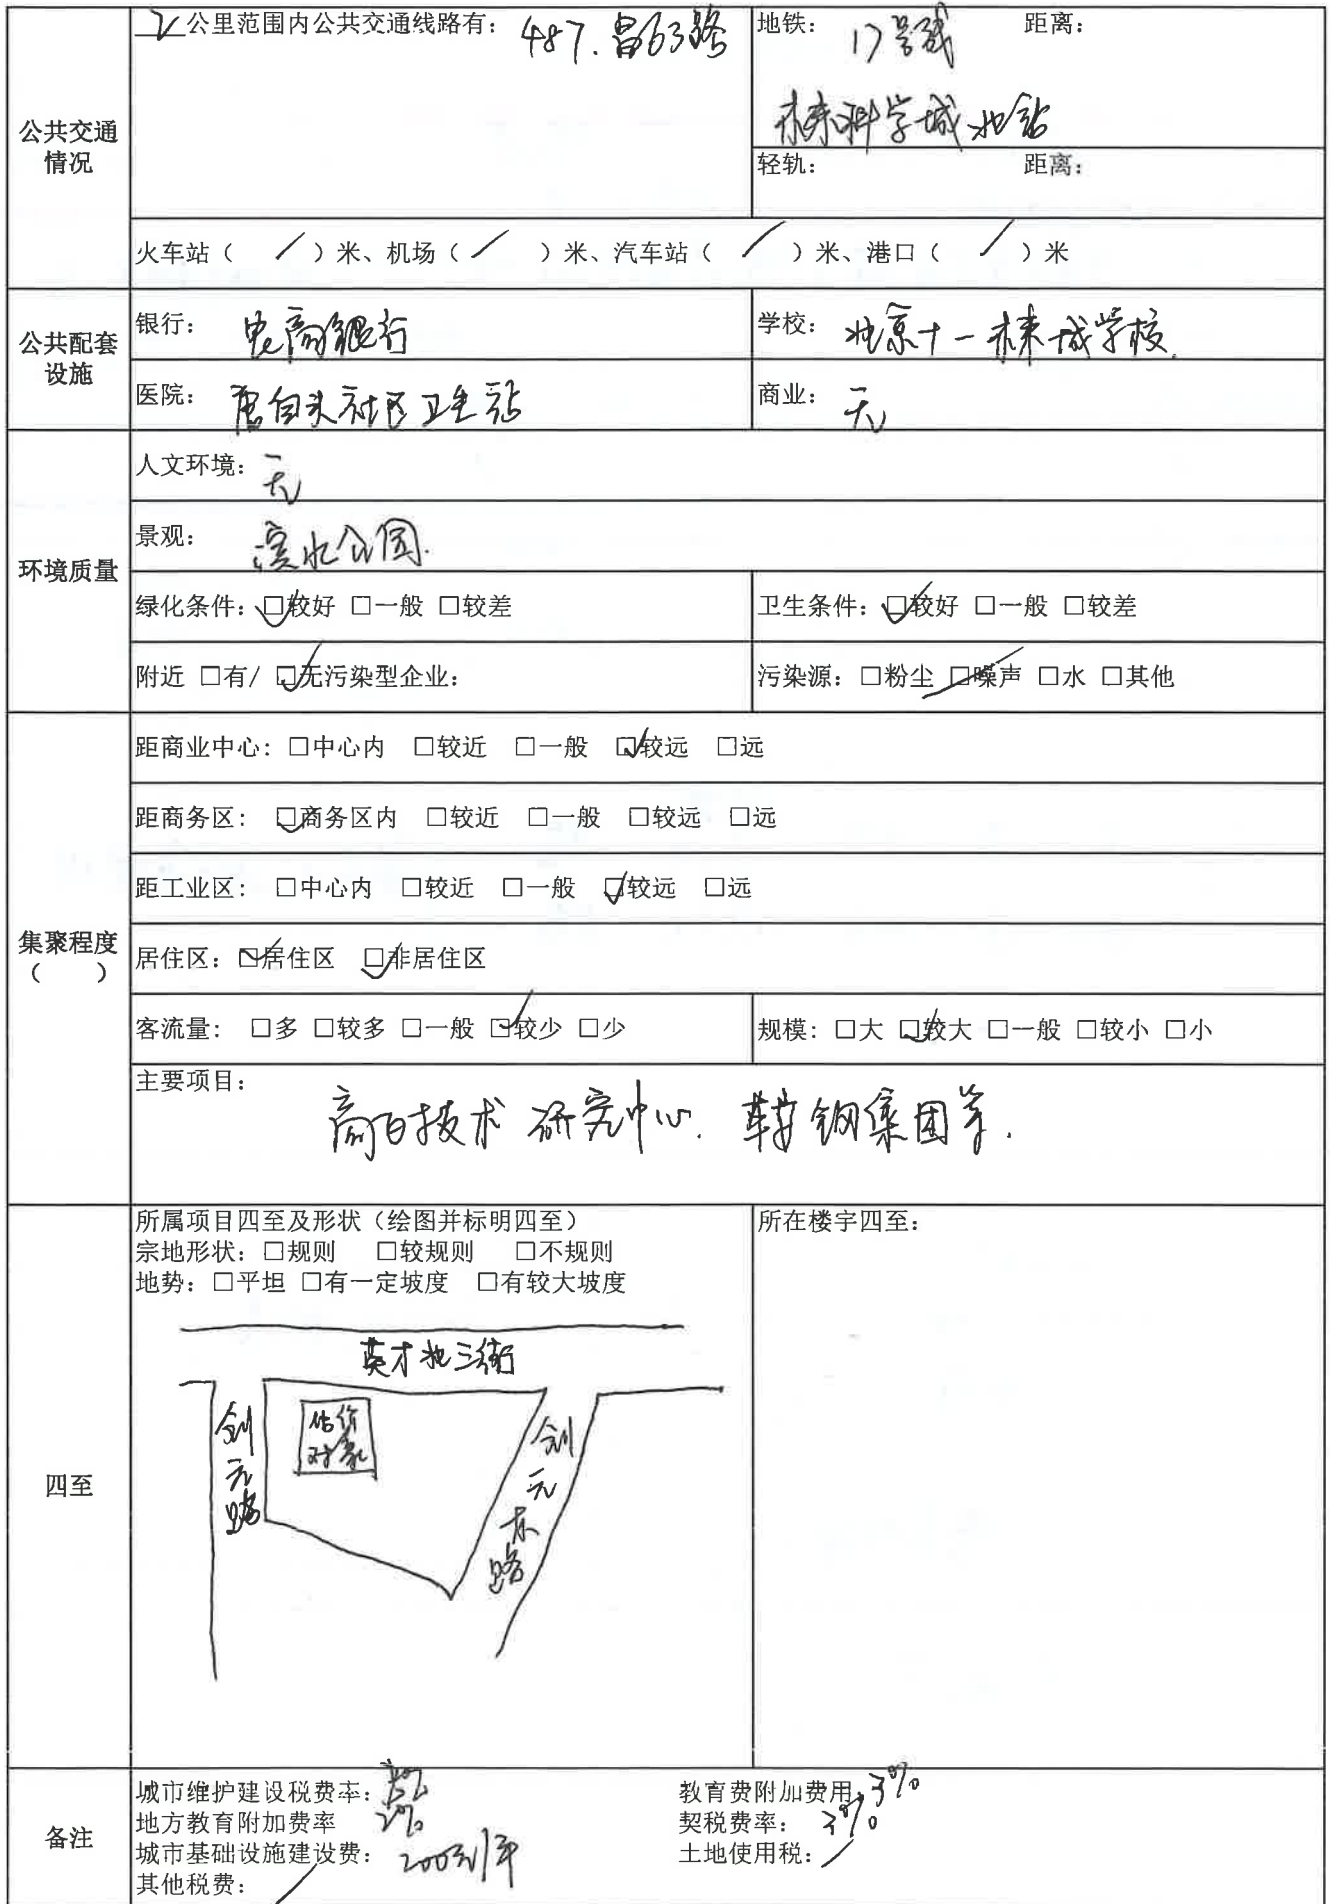 2公里范围内公共交通线路有：487、昌63路
地铁：17号线 距离：
未来科学城北站
公共交通情况
轻轨： 距离：
火车站（ / ）米、机场（ / ）米、汽车站（ / ）米、港口（ / ）米
公共配套设施
银行：农商银行
学校：北京十一未来城学校
医院：唐自头社区卫生站
商业：无
环境质量
人文环境：无
景观：滨水公园
绿化条件：☑较好 □一般 □较差
卫生条件：☑较好 □一般 □较差
附近 □有/ ☑无污染型企业：
污染源：□粉尘 ☑噪声 □水 □其他
集聚程度（ ）
距商业中心：□中心内 □较近 □一般 ☑较远 □远
距商务区：☑商务区内 □较近 □一般 □较远 □远
距工业区：□中心内 □较近 □一般 ☑较远 □远
居住区：☑居住区 ☑非居住区
客流量：□多 □较多 □一般 ☑较少 □少
规模：□大 ☑较大 □一般 □较小 □小
主要项目：
技术研究中心、鞍钢集团等.
四至
所属项目四至及形状（绘图并标明四至）
宗地形状：□规则 □较规则 □不规则
地势：□平坦 □有一定坡度 □有较大坡度
所在楼宇四至：
英才北三街
估价对象
创元路
创元东路
备注
城市维护建设税费率：5%
教育费附加费用：3%
地方教育附加费率 2%
契税费率：3%
城市基础设施建设费：200元/平
土地使用税：/
其他税费：/